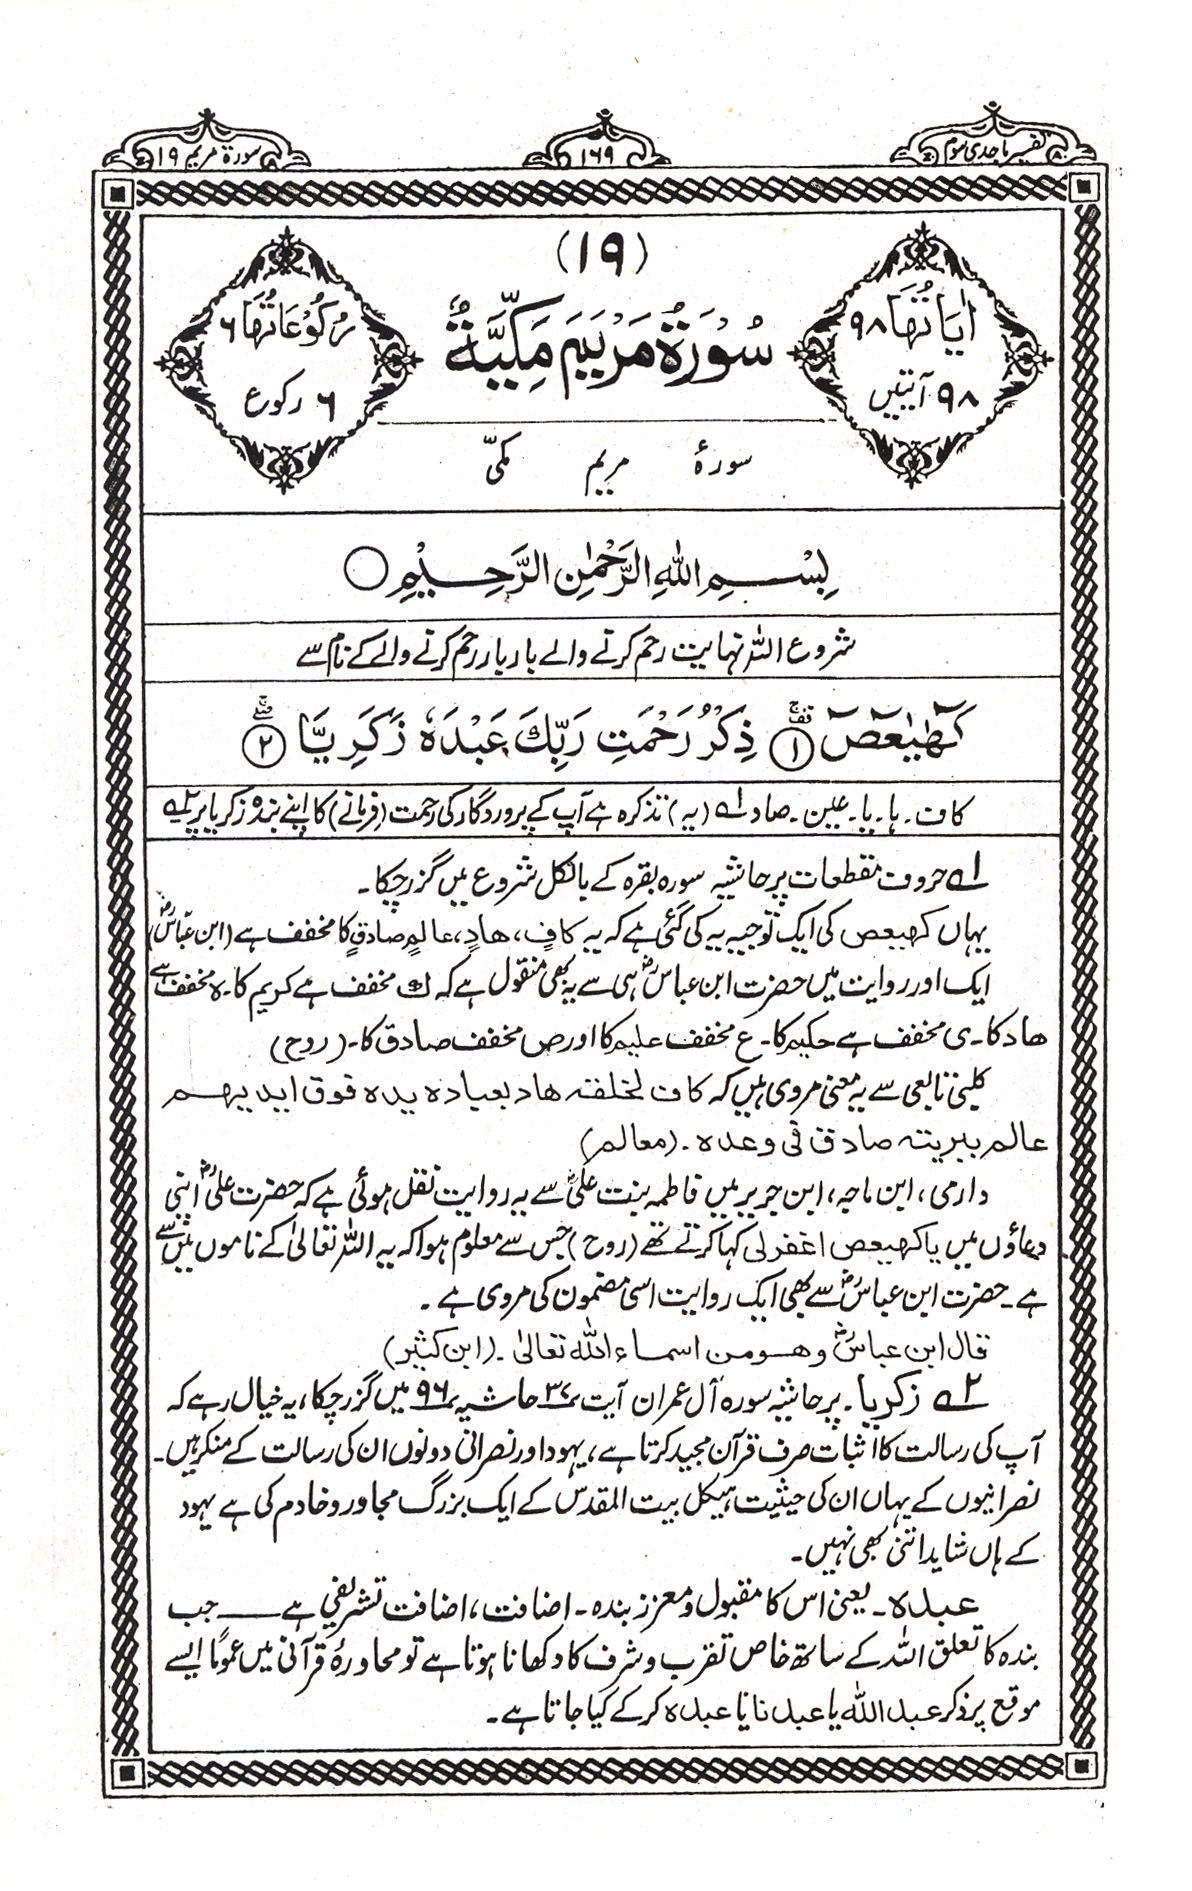 تفسیر ماجدی سوم
۱۶۹
سورۃ مریم ۱۹
(۱۹)
اٰیَاتُھَا ۹۸
۹۸ آیتیں
سُوۡرَۃُ مَرۡیَمَ مَکِّیَّۃٌ
رُکُوۡعَاتُھَا ۶
۶ رکوع
سورۂ مریم مکیّ
بِسۡمِ اللّٰہِ الرَّحۡمٰنِ الرَّحِیۡمِ ○
شروع اللہ نہایت رحم کرنے والے بار بار رحم کرنے والے کے نام سے
کٓھٰیٰعٓصٓ ﴿۱﴾ ذِکۡرُ رَحۡمَتِ رَبِّکَ عَبۡدَہٗ زَکَرِیَّا ﴿۲﴾
کاف۔ ہا۔ یا۔ عین۔ صاد ۱؎ (یہ) تذکرہ ہے آپ کے پروردگار کی رحمت (فرمانے) کا اپنے بندہ زکریا پر ۲؎
۱؎ حروف مقطعات پر حاشیہ سورہ بقرہ کے بالکل شروع میں گزر چکا۔
یہاں کھیعص کی ایک توجیہ یہ کی گئی ہے کہ یہ کافٍ، ھادٍ، عالمٍ صادقٍ کا مخفف ہے (ابن عباسؓ)
ایک اور روایت میں حضرت ابن عباسؓ ہی سے یہ بھی منقول ہے کہ ک مخفف ہے کریم کا۔ ہ مخفف ہے
ھاد کا۔ ی مخفف ہے حکیم کا۔ ع مخفف علیم کا اور ص مخفف صادق کا۔ (روح)
کلبی تابعی سے یہ معنی مروی ہیں کہ کاف لخلقہ ھاد بعبادہ یدہ فوق ایدیھم
عالم ببریتہ صادق فی وعدہ۔ (معالم)
دارمی، ابن ماجہ، ابن جریر میں فاطمہ بنت علیؓ سے یہ روایت نقل ہوئی ہے کہ حضرت علیؓ اپنی
دعاؤں میں یا کھیعص اغفرلی کہا کرتے تھے (روح) جس سے معلوم ہوا کہ یہ اللہ تعالیٰ کے ناموں میں سے
ہے۔ حضرت ابن عباسؓ سے بھی ایک روایت اسی مضمون کی مروی ہے۔
قال ابن عباسؓ وھو من اسماء اللہ تعالیٰ۔ (ابن کثیر)
۲؎ زکریا۔ پر حاشیہ سورہ آل عمران آیت ۳۷ حاشیہ ۹۶ میں گزر چکا، یہ خیال رہے کہ
آپ کی رسالت کا اثبات صرف قرآن مجید کرتا ہے، یہود اور نصرانی دونوں ان کی رسالت کے منکر ہیں۔
نصرانیوں کے یہاں ان کی حیثیت ہیکل بیت المقدس کے ایک بزرگ مجاور و خادم کی ہے یہود
کے ہاں شاید اتنی بھی نہیں۔
عبدہ۔ یعنی اس کا مقبول و معزز بندہ۔ اضافت، اضافت تشریفی ہے ـــــ جب
بندہ کا تعلق اللہ کے ساتھ خاص تقرب و شرف کا دکھانا ہوتا ہے تو محاورۂ قرآنی میں عموماً ایسے
موقع پر ذکر عبداللہ یا عبدنا یا عبدہ کر کے کیا جاتا ہے۔